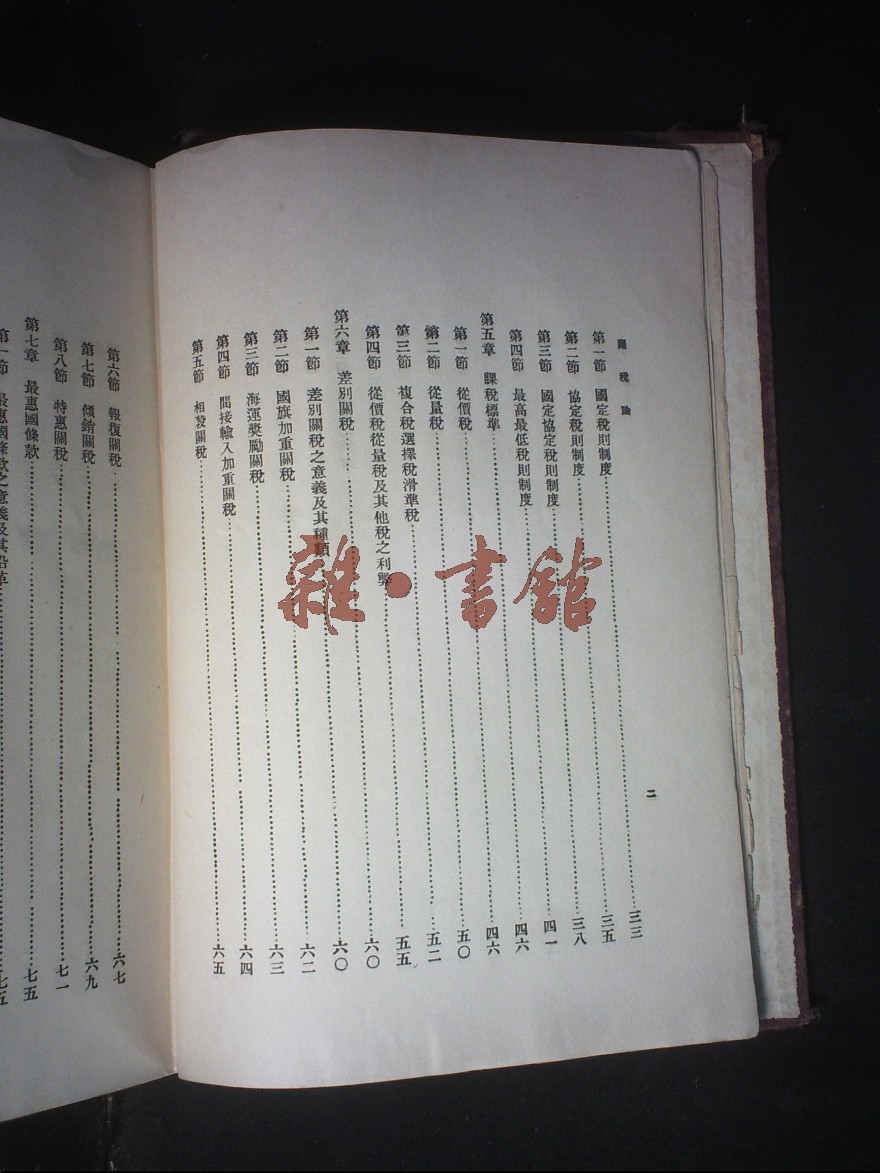 關稅論
二
第一節 國定稅則制度……三三
第二節 協定稅則制度……三五
第三節 國定協定稅則制度……三八
第四節 最高最低稅則制度……四一
第五章 課稅標準……四六
第一節 從價稅……四六
第二節 從量稅……五〇
第三節 複合稅選擇稅滑準稅……五二
第四節 從價稅從量稅及其他稅之利弊……五五
第六章 差別關稅……六〇
第一節 差別關稅之意義及其種類……六〇
第二節 國旗加重關稅……六二
第三節 海運獎勵關稅……六三
第四節 間接輸入加重關稅……六四
第五節 相殺關稅……六五
第六節 報復關稅……六七
第七節 傾銷關稅……六九
第八節 特惠關稅……七一
第七章 最惠國條款……七五
第一節 最惠國條款之意義及其沿革……七五
雜·書館